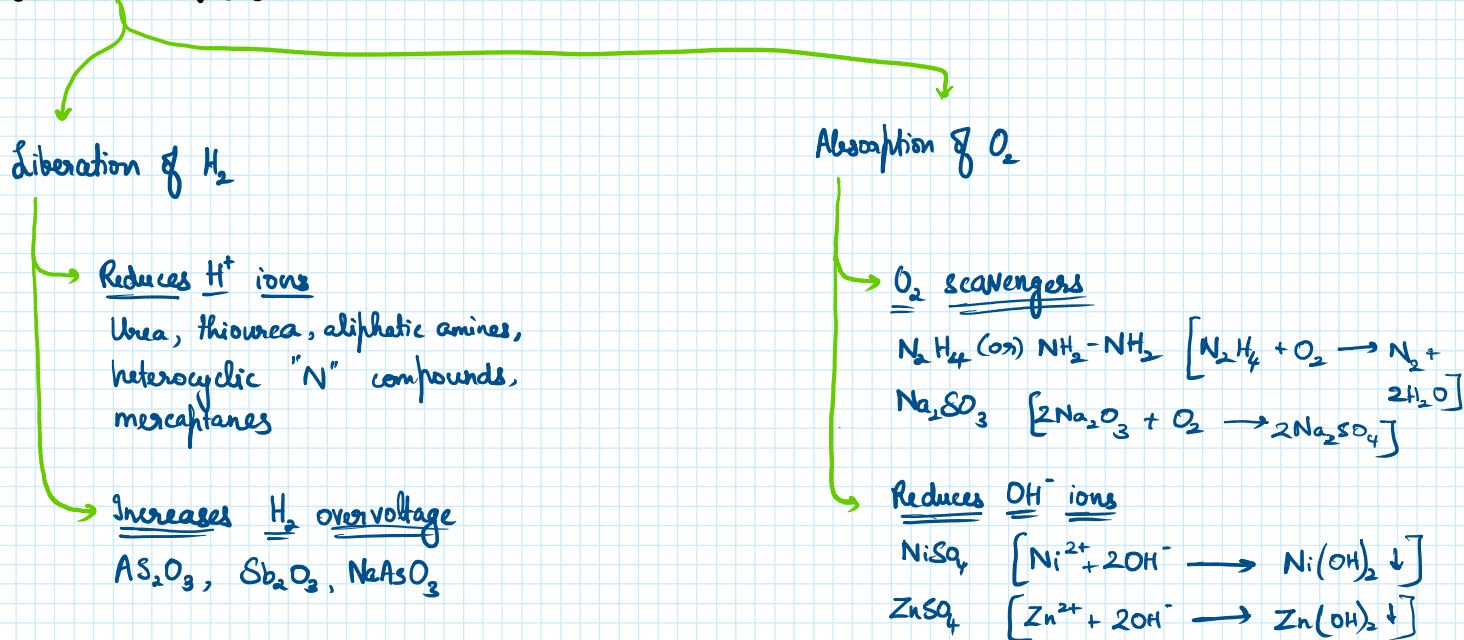 Liberation of H₂
Reduces H⁺ ions
Urea, thiourea, aliphatic amines,
heterocyclic "N" compounds,
mercaptanes
Increases H₂ overvoltage
AS₂O₃, Sb₂O₃, NaAsO₃
Absorption of O₂
O₂ scavengers
N₂H₄ (or) NH₂-NH₂ [N₂H₄ + O₂ → N₂ +
2H₂O]
Na₂SO₃ [2Na₂O₃ + O₂ → 2Na₂SO₄]
Reduces OH⁻ ions
NiSO₄ [Ni²⁺ + 2OH⁻ → Ni(OH)₂ ↓]
ZnSO₄ [Zn²⁺ + 2OH⁻ → Zn(OH)₂ ↓]